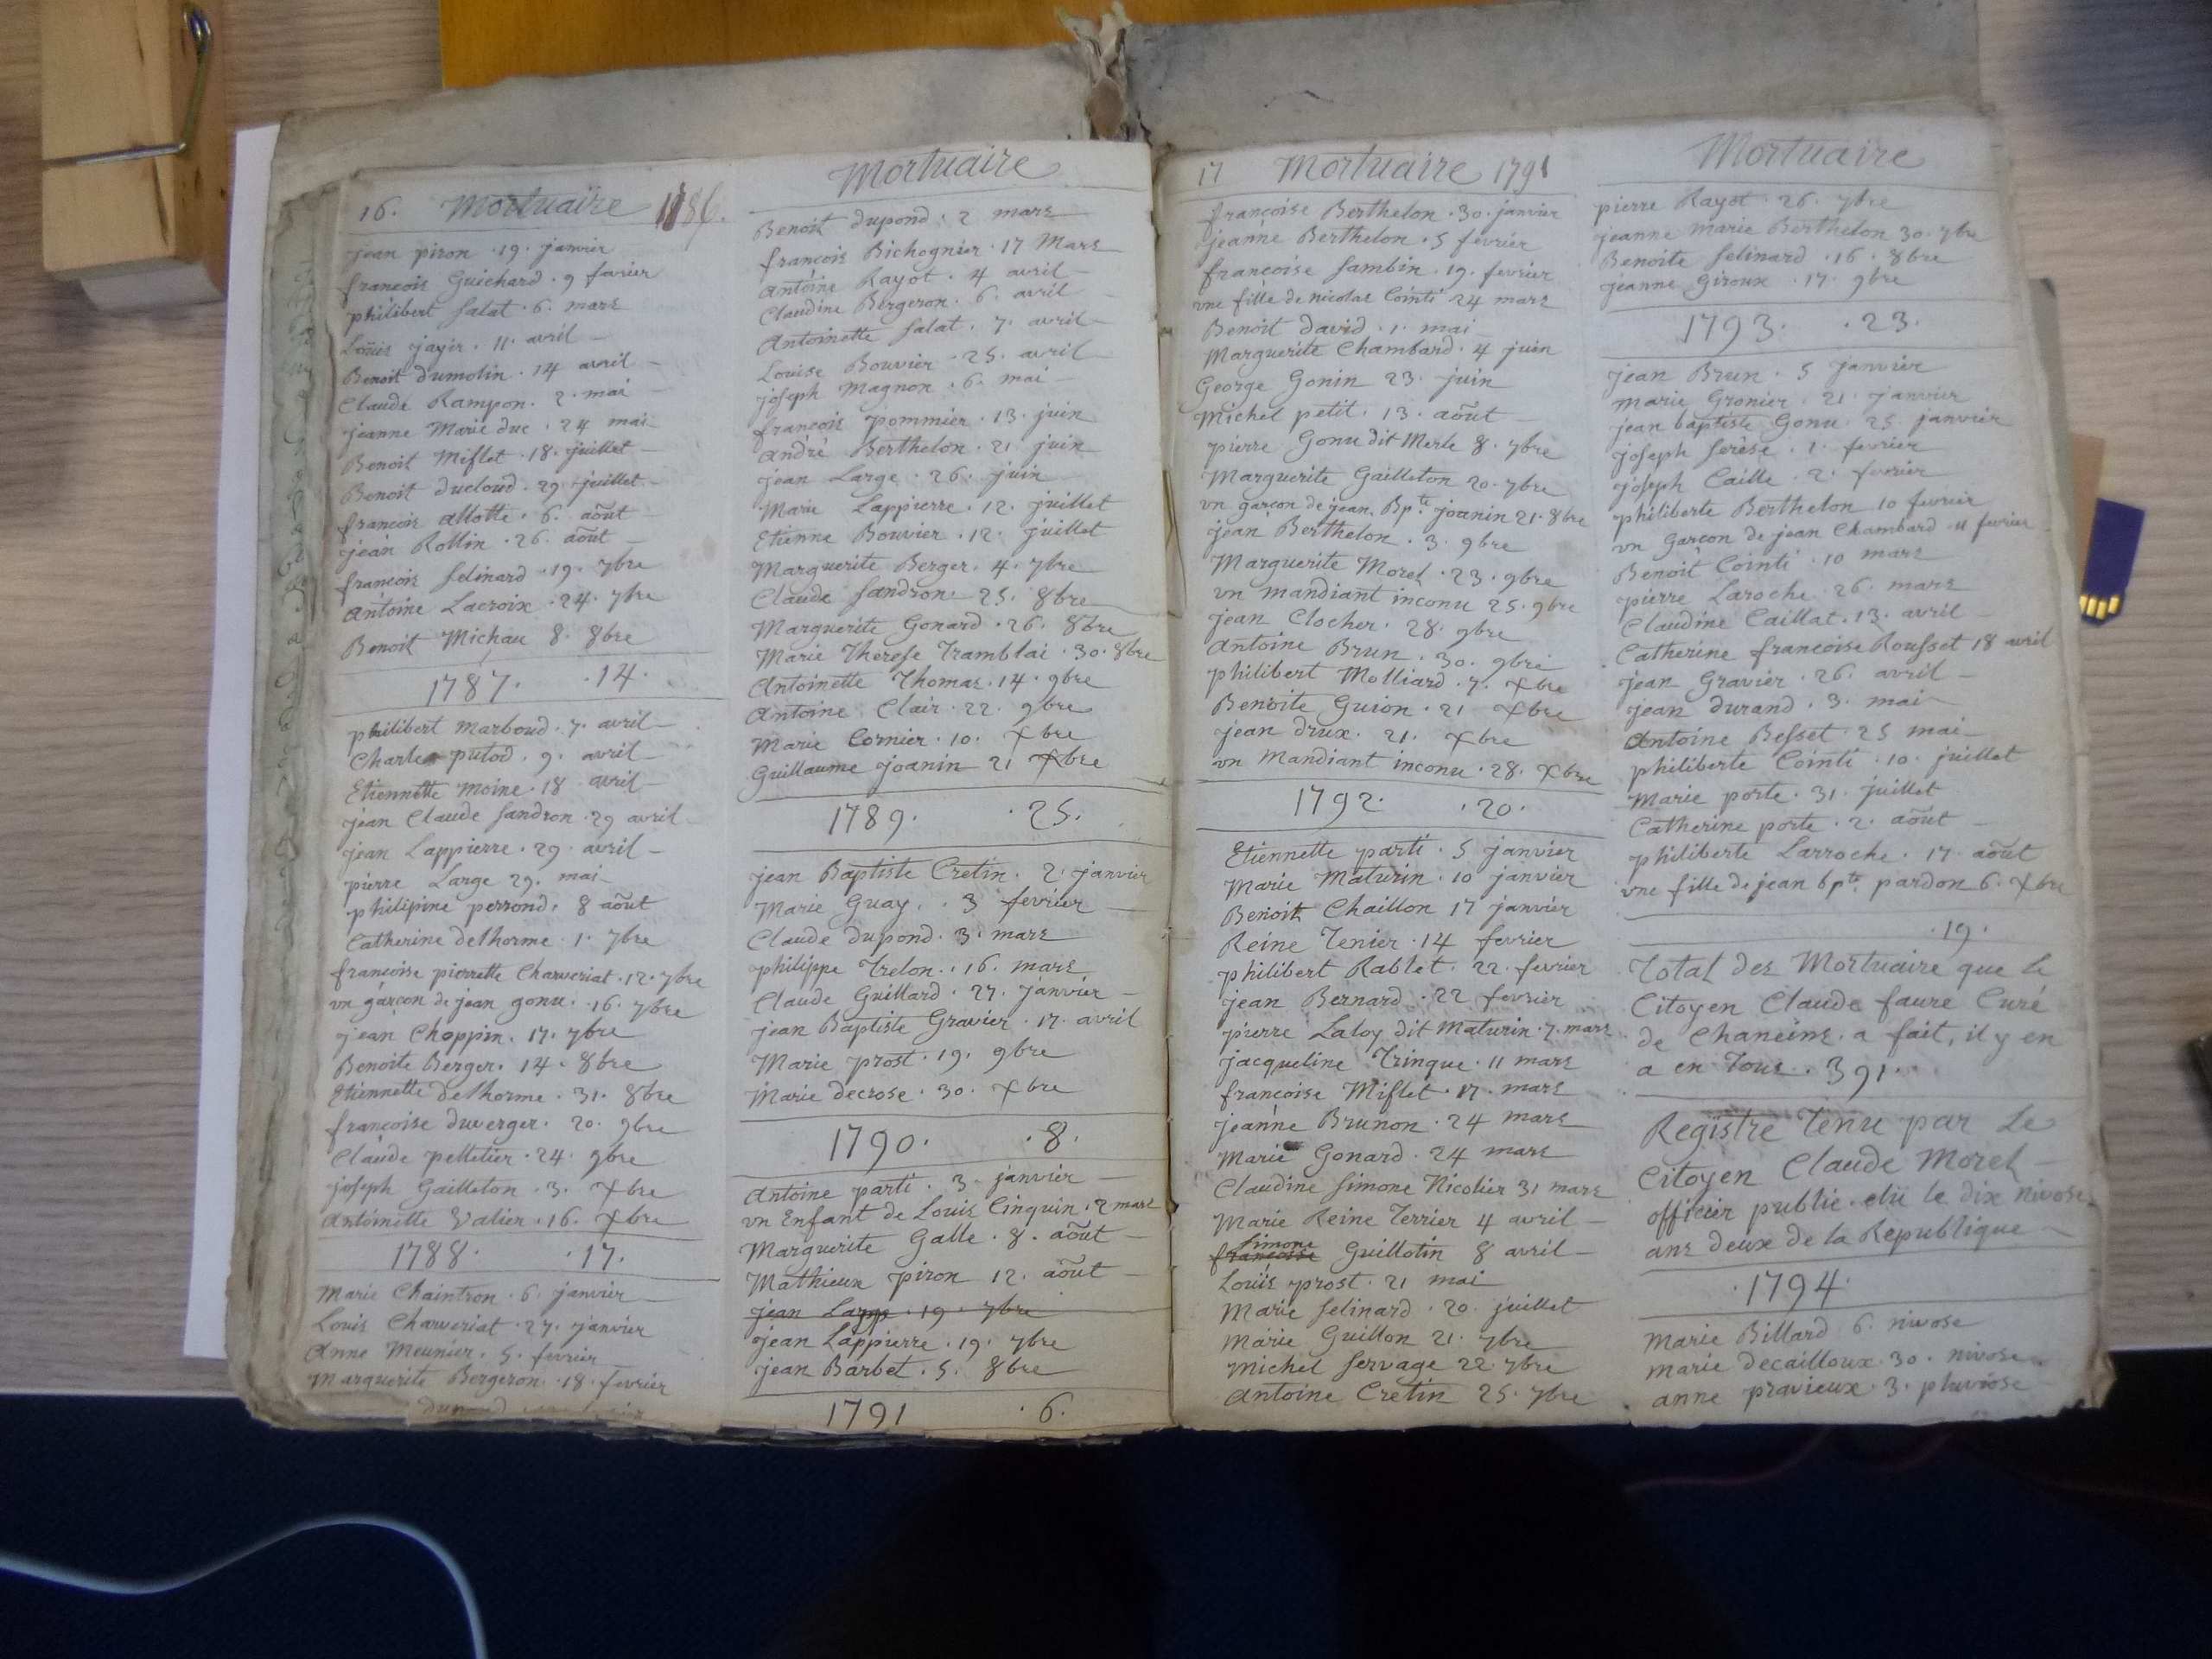 16. Mortuaire 1786.
jean piron . 19 . janvier
francois Guichard . 9 favier
philibert salat . 6 . mars
Loüis jayir . 11 . avril
Benoit dumolin . 14 avril
Claude Rampon . 2 . mai
jeanne Marie duc . 24 mai
Benoit Miflet . 18 . juillet
Benoit ducloud . 29 juillet
francois allotte . 6 . aôut
jean Rollin . 26 . aôut
francois selinard . 19 . 7bre
Antoine Lacroix . 24 . 7bre
Benoit Michau 8 . 8bre
1787 . . 14 .
philibert Marboud . 7 . avril
Charles putod . 9 . avril
Etiennette Moine . 18 . avril
jean Claude sandron . 29 avril
jean Lappierre . 29 . avril
pierre Large 29 . mai
philipine perrond . 8 aôut
Catherine delhorme . 1 . 7bre
francoise pierrette Charveriat . 12 . 7bre
un garcon de jean gonu . 16 . 7bre
jean Choppin . 17 . 7bre
Benoite Berger . 14 . 8bre
Etiennette delhorme . 31 . 8bre
francoise duverger . 20 . 9bre
Claude pelletier . 24 . 9bre
joseph Gailleton . 3 . Xbre
Antoinette Valier . 16 . Xbre
1788 . . 17 .
Marie Chaintron . 6 . janvier
Louis Charveriat . 27 . janvier
Anne Meunier . 5 . fevrier
Marguerite Bergeron . 18 . fevrier
Mortuaire
Benoit dupond . 2 mars
francois Bichognier . 17 Mars
Antoine Rayot . 4 avril
Claudine Bergeron . 6 . avril
Antoinette salat . 7 . avril
Louise Bouvier . 25 . avril
joseph Magnon . 6 . mai
francois pommier . 13 . juin
André Berthelon . 21 . juin
jean Large . 26 . juin
Marie Lappierre . 12 . juillet
Etienne Bouvier . 12 . juillet
Marguerite Berger . 4 . 7bre
Claude sandron . 25 . 8bre
Marguerite Gonard . 26 . 8bre
Marie Therese Tramblai . 30 . 8bre
Antoinette Thomas . 14 . 9bre
Antoine Clair . 22 . 9bre
Marie Cornier . 10 . Xbre
Guillaume joanin 21 Xbre
1789 . . 25 .
jean Baptiste Cretin . 2 . janvier
Marie Guay . . 3 fevrier
Claude dupond . 3 . mars
philippe Trelon . . 16 . mars
Claude Guillard . 27 . janvier
jean Baptiste Gravier . 17 . avril
Marie prost . 19 . 9bre
Marie decrose . 30 . Xbre
1790 . . 8 .
Antoine parti . 3 . janvier
un Enfant de Louis Cinquin . 2 mars
Marguerite Galle . 8 . aôut
Mathieux piron 12 . aôut
jean Large . 19 . 7bre
jean Lappierre . 19 . 7bre
jean Barbet . 5 . 8bre
1791 . 6 .
17 Mortuaire 1791
francoise Berthelon . 30 . janvier
jeanne Berthelon . 5 fevrier
francoise sambin . 19 . fevrier
une fille de nicolas Cointi 24 mars
Benoit david . 1 . mai
Marguerite Chambard . 4 juin
George Gonin 23 . juin
Michel petit . 13 . aôut
pierre Gonu dit Merle 8 . 7bre
Marguerite Gailleton 20 . 7bre
un garcon de jean Bpte joanin 21 . 8bre
jean Berthelon . 3 . 9bre
Marguerite Morel . 23 . 9bre
un mandiant inconu 25 . 9bre
jean Clocher . 28 . 9bre
Antoine Brun . 30 . 9bre
philibert Molliard . 7 . Xbre
Benoite Guion . 21 Xbre
jean drux . 21 . Xbre
un Mandiant inconu . 28 . Xbre
1792 . . 20 .
Etiennette parti . 5 janvier
Marie Maturin . 10 janvier
Benoit Chaillon 17 janvier
Reine Tenier . 14 fevrier
philibert Rablet . 22 . fevrier
jean Bernard . 22 fevrier
pierre Laloy dit Maturin . 7 . mars
jacqueline Tringue . 11 mars
francoise Miflet . 17 . mars
jeanne Brunon . 24 mars
Marie Gonard . 24 mars
Claudine simone Nicolier 31 mars
Marie Reine Terrier 4 avril
simone
francoise Guillotin 8 avril
Loüis prost . 21 mai
Marie selinard . 20 . juillet
Marie Guillon 21 . 7bre
Michel servage 22 7bre
Antoine Cretin 25 . 7bre
Mortuaire
pierre Rayot . 26 . 7bre
jeanne marie Berthelon 30 . 7bre
Benoite selinard . 16 . 8bre
jeanne Giroux . 17 . 9bre
1793 . . 23 .
jean Brun . 5 janvier
Marie Gronier . 21 . janvier
jean baptiste Gonu . 25 janvier
joseph serese . 1 . fevrier
joseph Caille . 2 . fevrier
philiberte Berthelon 10 fevrier
un Garcon de jean Chambard 11 fevrier
Benoit Cointi . 10 mars
pierre Laroche . 26 . mars
Claudine Caillat . 13 . avril
Catherine francoise Rousset 18 avril
jean Gravier . 26 . avril
jean durand . 3 . mai
Antoine Besset . 25 mai
philiberte Cointi . 10 . juillet
Marie porte . 31 . juillet
Catherine porte . 2 . aôut
philiberte Larroche . 17 . aôut
une fille de jean bpte pardon 6 . Xbre
. 19 .
Total des Mortuaire que le
Citoyen Claude faure Curé
de Chaneins . a fait, il y en
a en Tous . 391 .
Registre Tenu par Le
Citoyen Claude Morel
officier public . elü le dix nivose
ans deux de la Republique
. 1794 .
Marie Billard 6 . nivose
marie decailloux . 30 . nivose
anne pravieux . 3 . pluviose